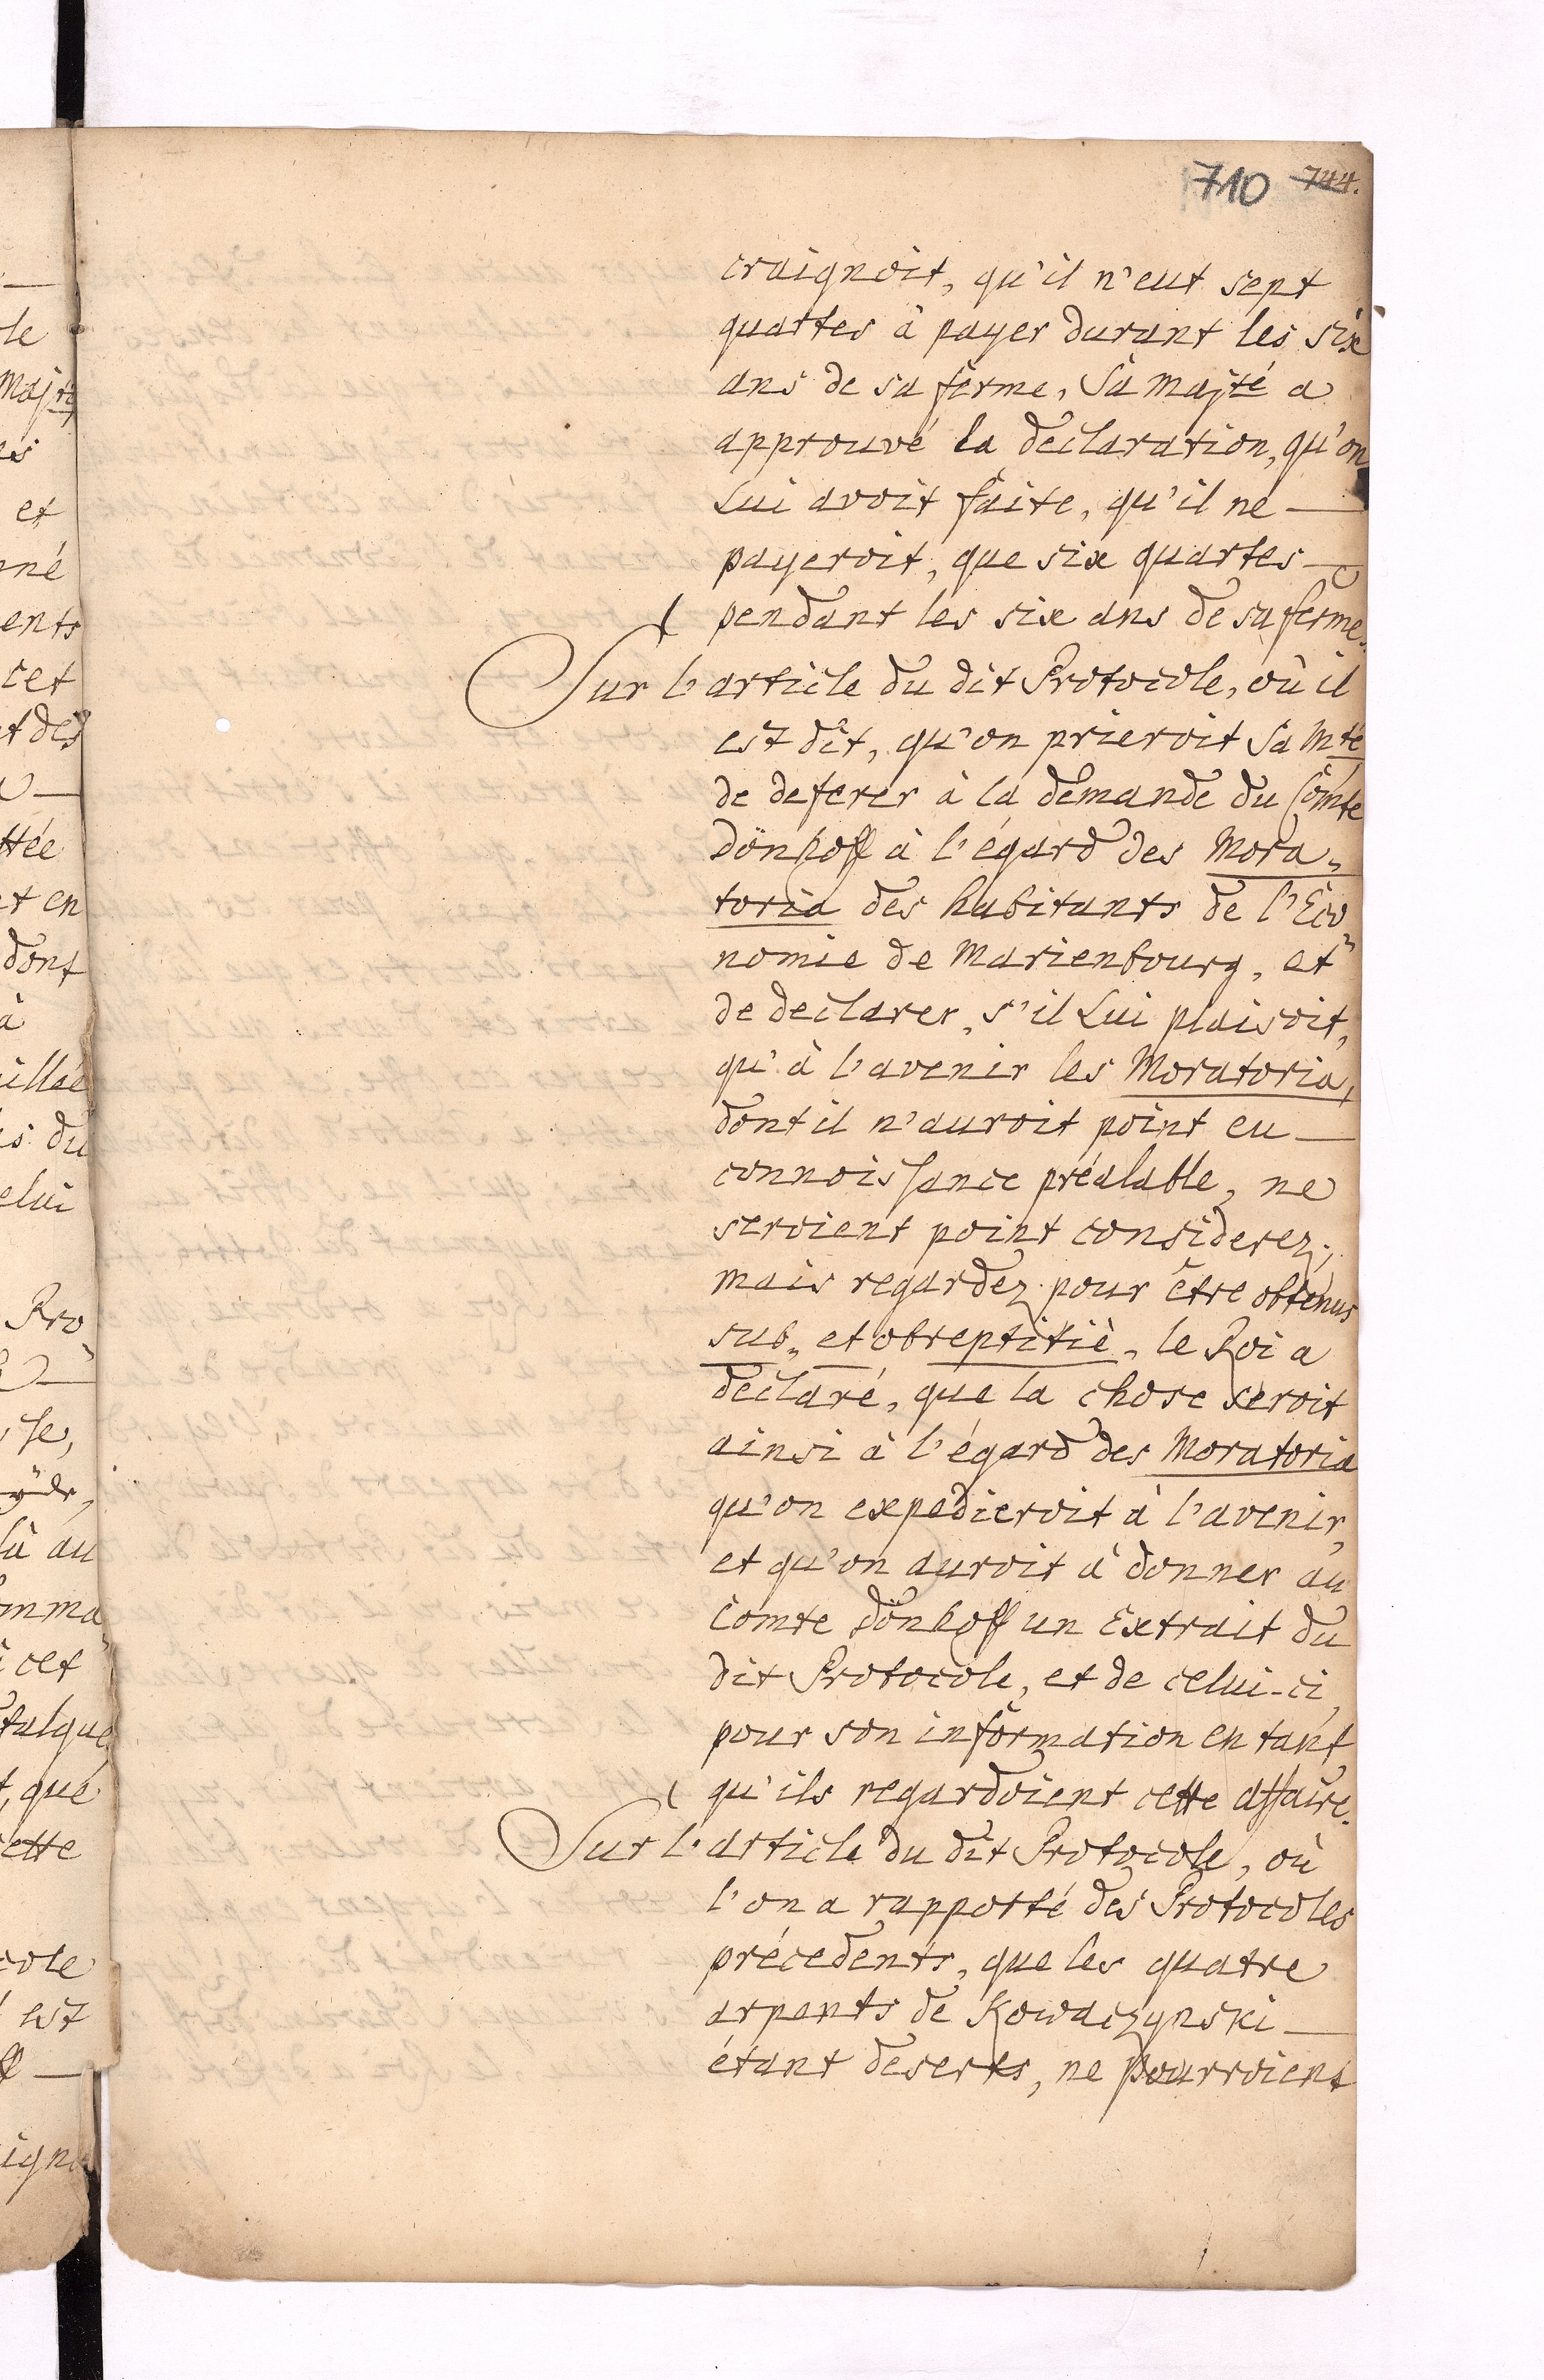 710 744.
craignoit, qu'il n'eut sept
quartes à payer durant les six
ans de sa ferme, Sa Majté a
approuvé la declaration, qu'on
Lui avoit faite, qu'il ne —
payeroit, que six quartes —
pendant les six ans de sa ferme.
Sur l'article du dit Protocole, où il
est dit, qu'on prieroit Sa Mté
de deferer à la demande du Comte
Dönhoff à l'égard des Mora„
toria des habitants de l'Eco„
nomie de Marienbourg, et
de declarer, s'il Lui plaisoit,
qu'à l'avenir les Moratoria,
dont il n'auroit point eu —
connoissance préalable, ne
seroient point considerez;
mais regardez pour être obtenus
sub„ et obreptitiè, le Roi a
declaré, que la chose seroit
ainsi à l'égard des Moratoria
qu'on expedieroit à l'avenir,
et qu'on auroit à donner au
Comte Dönhoff un Extrait du
dit Protocole, et de celui-ci,
pour son information en tant
qu'ils regardoient cette affaire.
Sur l'article du dit Protocole, où
l'on a rapporté des Protocoles
précedents, que les quatre
arpents de Kowaczynski —
étant deserts, ne pourroient
le
Majté
et
né
ents
cet
t des
ttée
t en
dont
à
illée
s du
elui
Pro
se,
là au
mma
cet
talque
t, que
cette
cole
est
igno